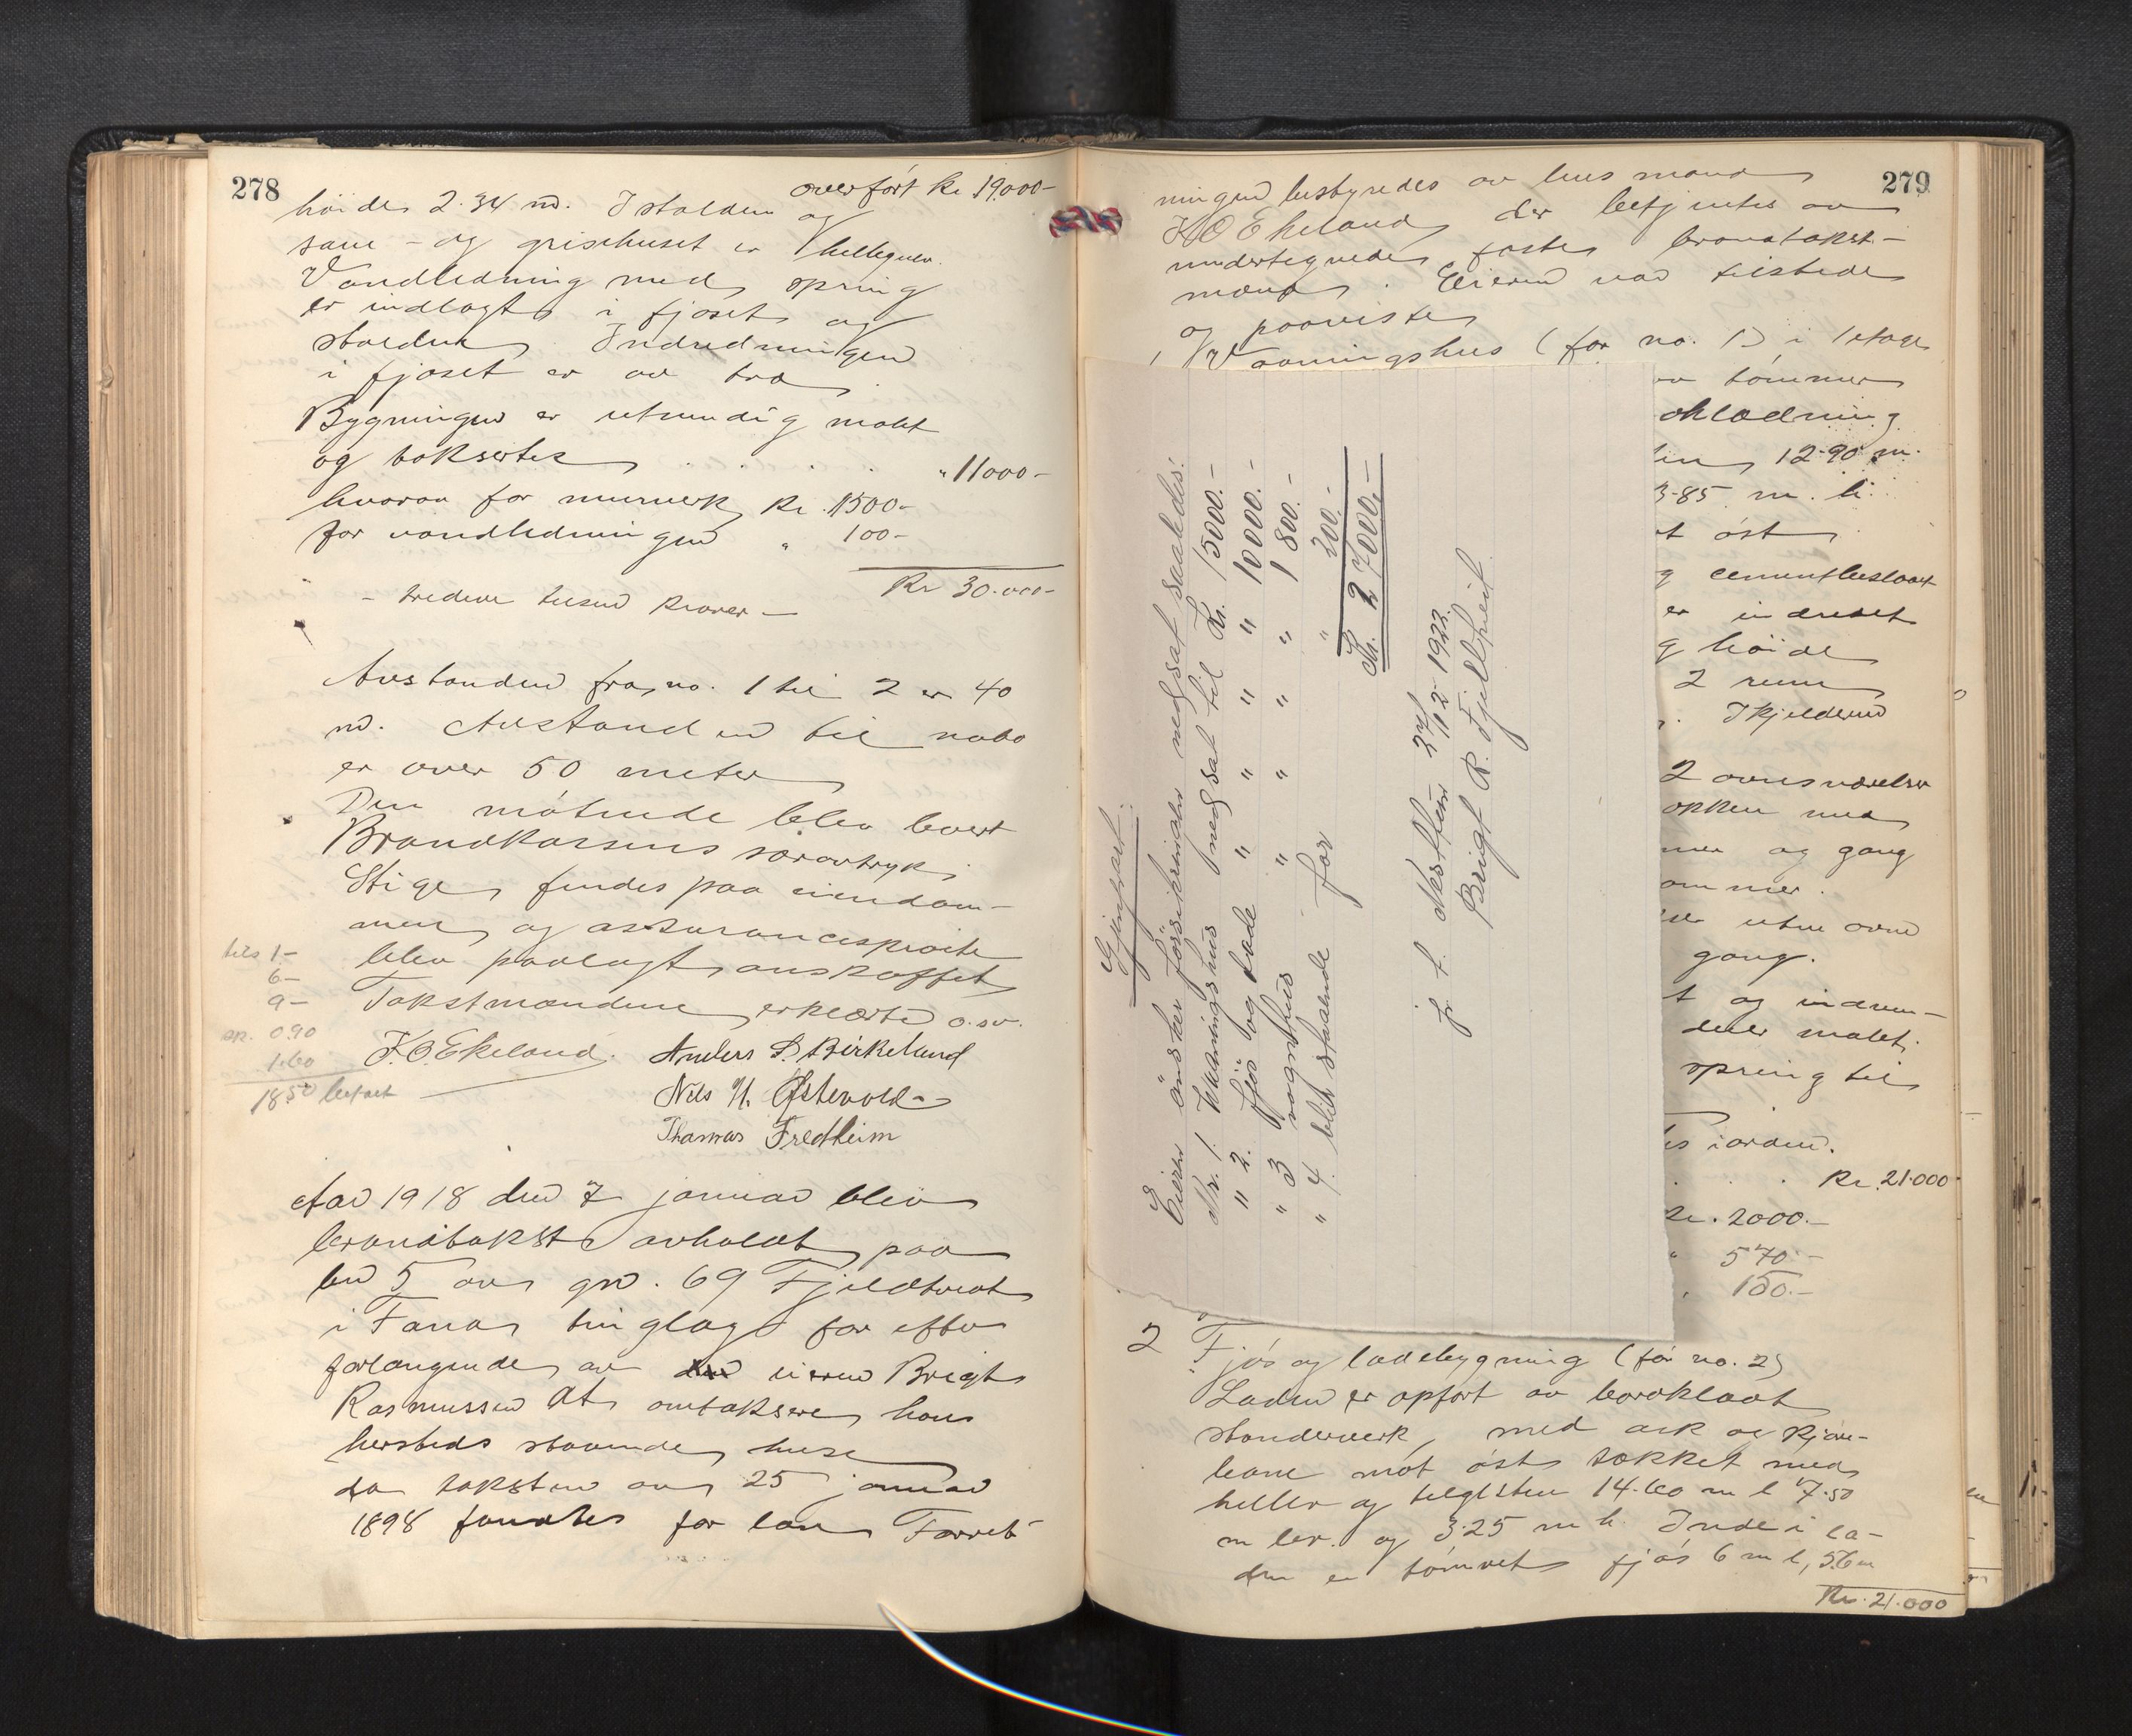 278
overført kr 19.000-
høide 2.34 m. I stalden og
saue - og grisehuset er hellegulv.
Vandledning med spring
er indlagt i fjøset og
stalden. Indredningen
i fjøset er av træ.
Bygningen er utvendig malt
og takseres . . . . " 11000-
hvorav for murverk kr. 1500-
for vandledningen " 100-
Kr 30.000-
- tredeve tusend kroner -
Avstanden fra no. 1 til 2 er 40
m. Avstanden til nabo
er over 50 meter
Den møtende blev levert
Brandkassens særavtryk.
Stige findes paa eiendom-
men og assurancesprøite
blev paalagt anskaffet
Takstmændene erklærte o.s.v.
tils 1-
6-
9-
0.90
1.60
18.50 betalt
K.O. Ekeland.
Anders B. Birkeland
Nils N. Østevold
Thomas Fredheim
Aar 1918 den 7 januar blev
brandtakst avholdt paa
bno 5 av gno. 69 Fjeldtveit
i Fana tinglag for efter
forlangende av eieren Brigt
Rasmussen at omtaksere hans
hersteds staaende huse
da taksten av 25 januar
1898 fandtes for lav Forret-
279
ningen bestyredes av lensmand
K O Ekeland der betjentes av
undertegnede faste brandtakst-
mænd. Eieren var tilstede
og paaviste
1 Vaaningshus (før no. 1) i 1 etage
tømmer
12.90 m.
3.85 m. h.
øst
cementpudset
er indredet
høide
2 rum
I kjelderen
2 ovnsværelser
med
og gang
uten ovn
gang.
og indven-
malet.
spring til
iorden.
Kr. 21.000
2000.-
" 570.-
" 150.-
Gjenpart.
Eieren ønsker forsikringen nedsat saaledes:
Nr. 1. Vaaningshus nedsat til Kr. 15000.-
" 2. fjøs og lade " " " " 10000.-
" 3 vognhus " " " " 1800.-
" 4. blir staaende for " 200.-
Kr. 27000,-
p. t. Nesttun 2/12 1922.
Brigt R. Fjeldtveit.
2 Fjøs og ladebygning (før no. 2)
Laden er opført av bordklædt
stenderverk, med ark og kjøre-
bro mot øst tækket med
heller og teglsten 14.60 m l 7.50
m br. og 3.25 m h. Inde i la-
den er tømret fjøs 6 m l, 5.6 m
Kr. 21.000